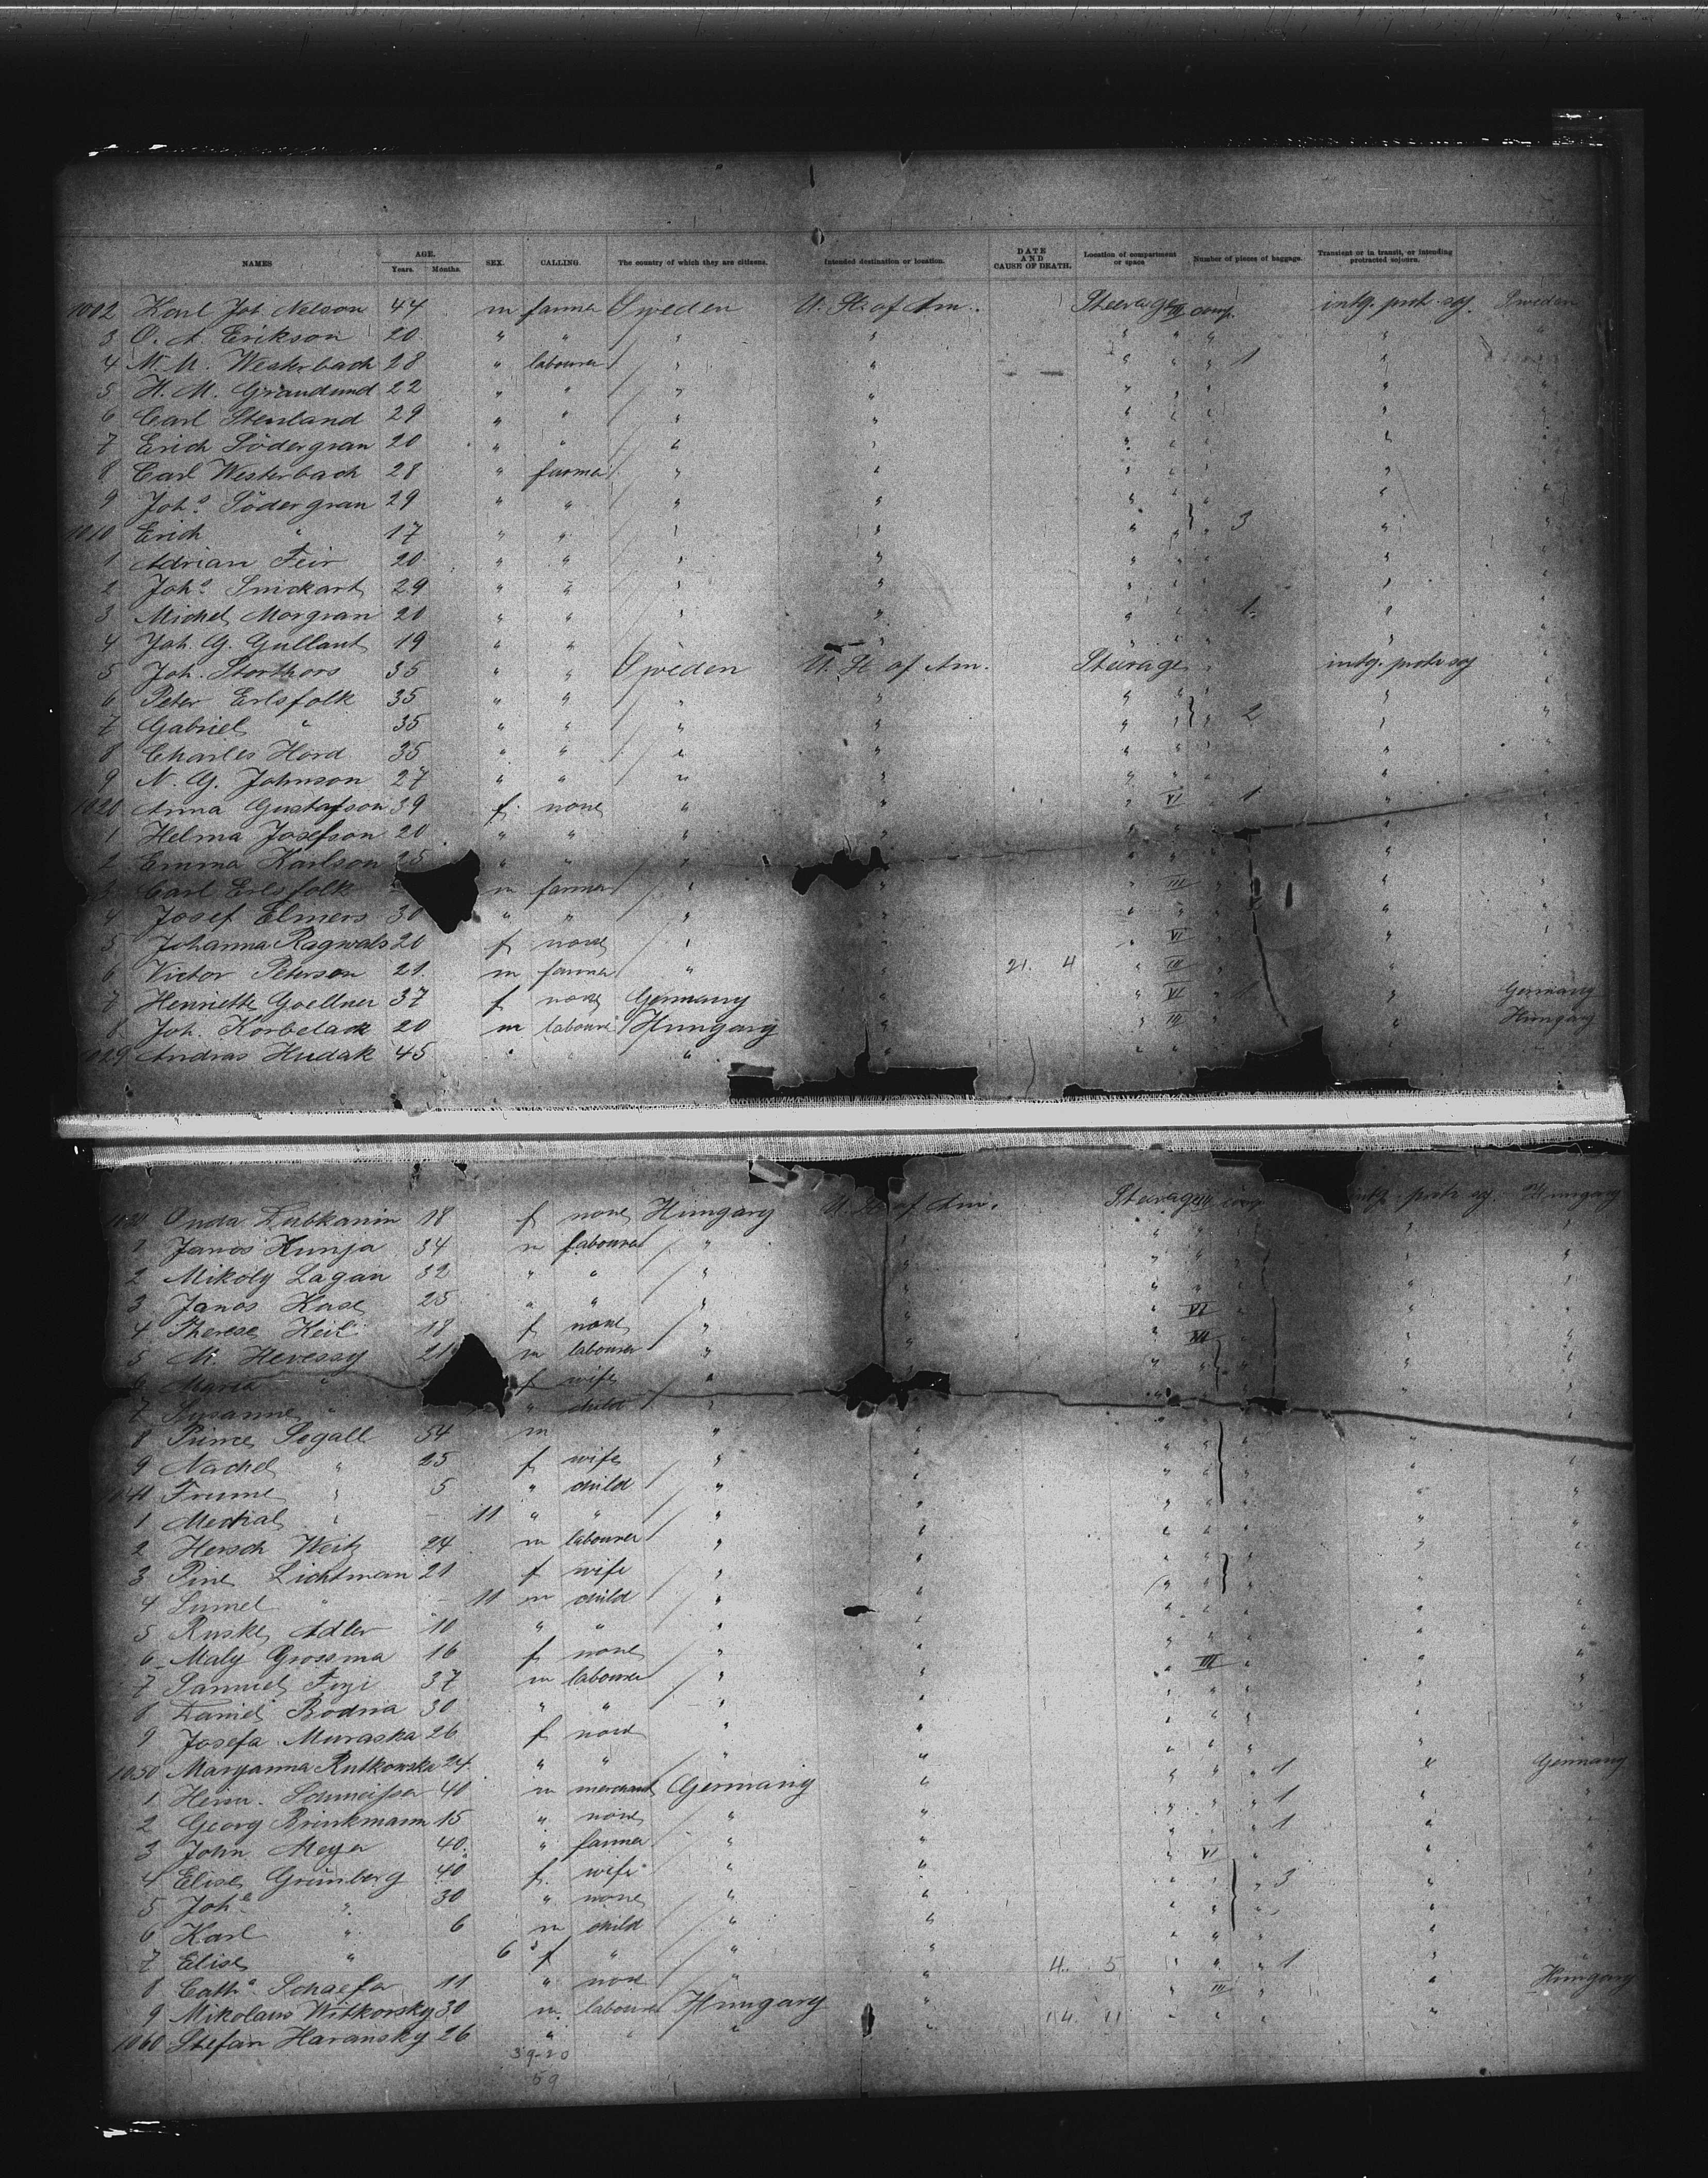 NAMES AGE. Years. Months. SEX. CALLING. The country of which they are citizens. Intended destination or location. DATE AND CAUSE OF DEATH. Location of compartment or space Number of pieces of baggage. Transient or in transit, or intending protracted sojourn.
1002 Karl Joh Nelson 44 m farmer Sweden U. St. of Am. Steerage III comp. intg. protr. soj. Sweden
3 O. A. Erikson 20 " " " " " " " "
4 M. M. Westerbach 28 " labourer " " " " " 1 "
5 H. M. Grandund 22 " " " " " " " "
6 Carl Stenland 29 " " " " " " " "
7 Erich Södergran 20 " " " " " " " "
8 Carl Westerbach 28 " farmer " " " " " "
9 Joh. Södergran 29 " " " " " " " "
1010 Erich " 17 " " " " " " " 3 "
1 Adrian Feir 20 " " " " " " "
2 Joh. Snickart 29 " " " " " "
3 Michel Morgran 20 " " " " " " 1 "
4 Joh. G. Gullant 19 " " " " " "
5 Joh. Storthors 35 " " Sweden U. St. of Am. Steerage " intg. protr soj "
6 Peter Erlsfolk 35 " " " " " " " "
7 Gabriel " 35 " " " " " " " 2 " "
8 Charles Hord 35 " " " " " " " "
9 N. G. Johnson 27 " " " " " " " " "
1020 Anna Gustafson 39 f. none " " " VI " 1 " "
1 Helma Josefson 20 " " " " " " " "
2 Emma Karlson 25 " " " " " " "
3 Carl Erlsfolk m farmer " " " III " " "
4 Josef Elmers 30 " " " " " " " " "
5 Johanna Ragwals 20 f none " " " VI " "
6 Victor Peterson 21 m farmer " " 21. 4 " III " "
7 Henriette Goellner 37 f none Germany " " VI " 1 " Germany
8 Joh. Korbelack 20 m labourer Hungary " " III " " Hungary
1029 Andras Hudak 45 " " " " " " " "
Hungary U. St. of Am. Steerage intg. protr soj Hungary
18 f none
1 Janos Kunja 34 m labourer " " " " " " "
2 Mikoly Lagan 32 " " " " " " " " "
3 Janos Kase 25 " " " " " " " "
4 Therese Keil 18 f none " " " VI " " "
5 M. Hevessy 21 m labourer " " " III " "
6 Maria " f wife " " " "
7 Susanne " " child " " "
8 Prince Segall 34 m " " " "
9 Rachel " 25 f wife " " " " " " "
Frume " 5 " child " " " " " " "
1 " 11 " " " " " " " "
2 Hersch Weitz 24 m labourer " " " " " "
3 Pine Lichtman 21 f wife " " " " " "
4 Sumel " 11 m child " " " " " "
5 Ruske Adler 10 " " " " " " " "
6 Maly Grossma 16 f none " " " " " "
7 Samuel Fezi 37 m labourer " " " III " "
8 Daniel Bodna 30 " " " " " " " "
9 Josefa Muraska 26 f none " " " " " "
1050 Maryanna Rutkowska 24 " " " " " " " "
1 Herm. Schmeisser 40 m merchant Germany " " " " 1 " Germany
2 Georg Brinkmann 15 " none " " " " " 1 "
3 John Meyer 40 " farmer " " " " " 1 "
4 Elise Grünberg 40 f. wife " " " VI " "
5 Joh. " 30 " none " " " " " 3 "
6 Karl " 6 m child " " " " " "
7 Elise " 6 f " " " " " " "
8 Cath. Schaefer 11 " none " " 4. 5 " " " 1 "
9 Mikolaus Witkorsky 30 m labourer Hungary " " III " " Hungary
1060 Stefan Haransky 26 " " " " 14. 11 " " " "
39-20
59